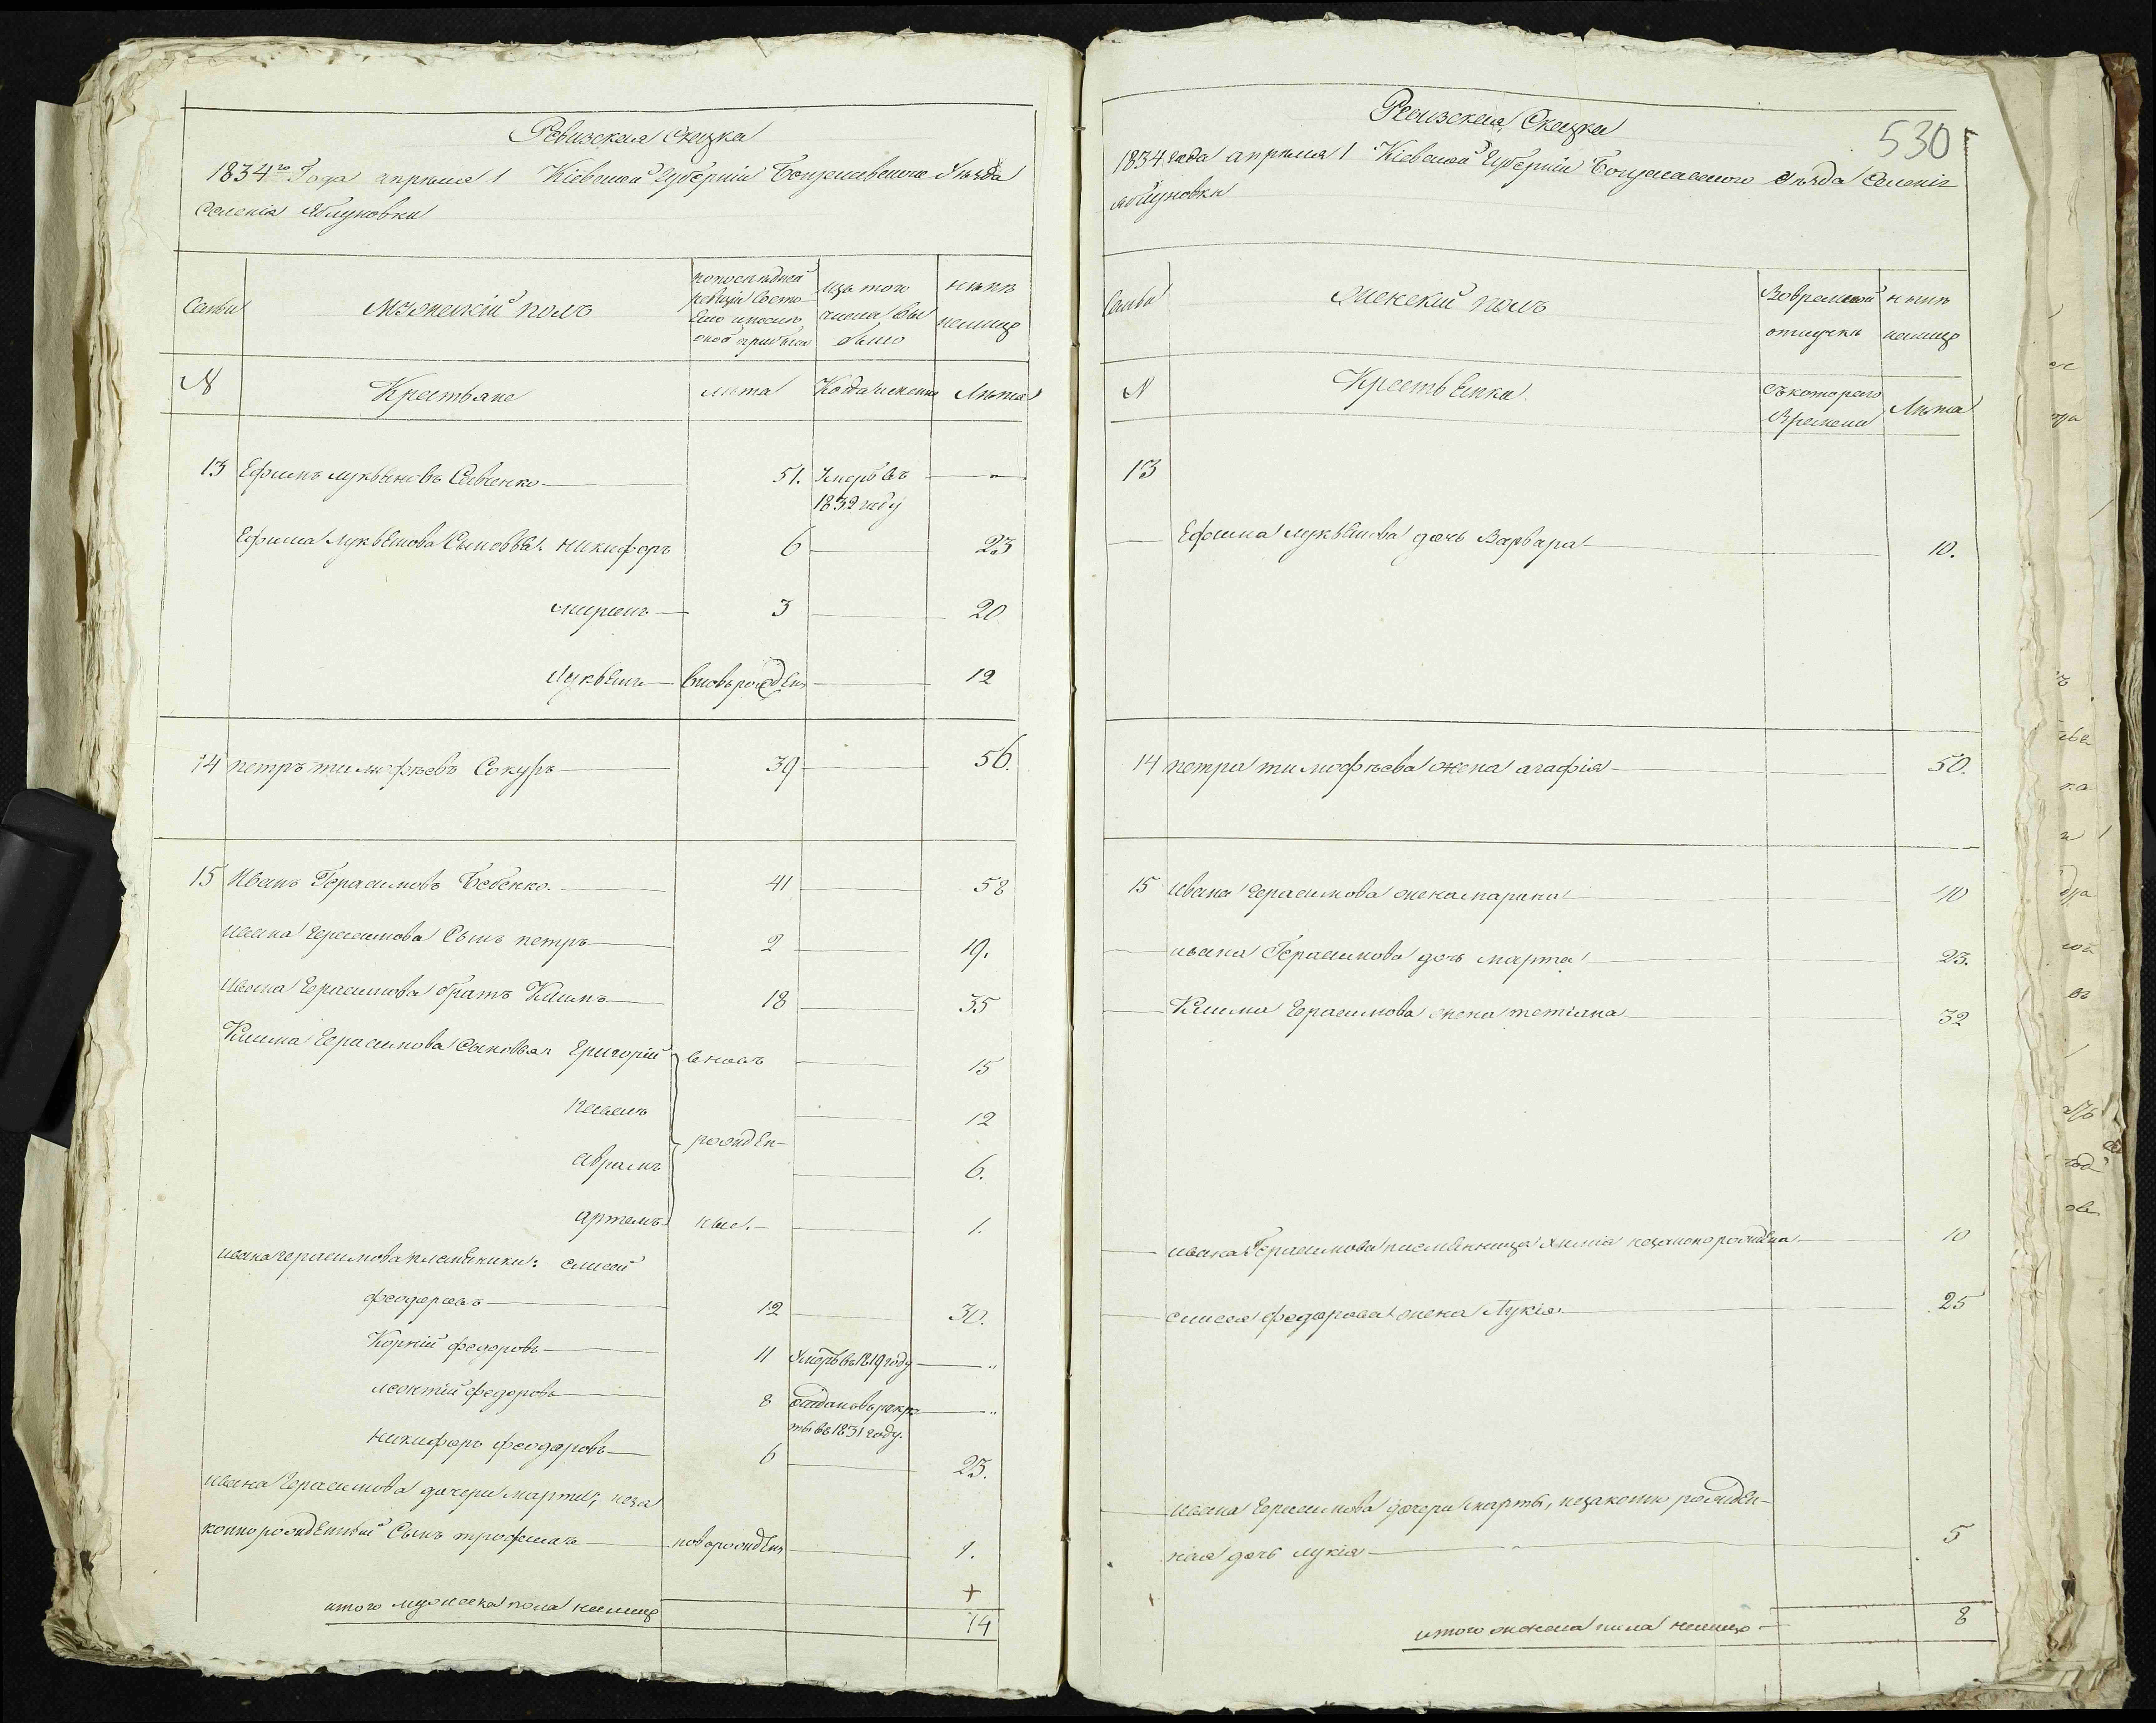 Ревизская Сказка
1834го Года апреля 1 Кіевской Губерніи Богуславского Уезда
Селенія Яблуновки
Семьи
Мужескій полъ
попоследней ревизіи Состояло ипосле оной прибыло
изъ того числа выбыло
ныне налицо
№
Крестьяне
лета
Когда именно
Лета
13 Ефимъ лукьяновъ Савченко 51. Умеръ въ 1832 году "
Ефима Лукьянова Сыновья: никифоръ 6 23
миронъ 3 20
лукьянъ вновърожденъ 12
14 петръ тимофеевъ Сокуръ 39 56.
15 Иванъ Герасимовъ Бебенко. 41 58
ивана герасимова Сынъ петръ 2 19.
Ивана Герасимова братъ Климъ 18 35
Клима Герасимова Сыновья: Григорій вновъ 15
12
аврамъ рожден- 6.
артемъ ные.- 1.
ивана герасимова племяники: елисей
феодоровъ 12 30.
Корній федоровъ 11 Умеръ въ 1819 году "
леонтій федоровъ 8 отданъ въ рекруты въ 1831 году. "
никифоръ феодоровъ 6 23.
ивана Герасимова дочери марты, неза
коннорожденный Сынъ трофимъ новорожденъ 1.
+
итого мужеска пола налицо 14
Ревизская Сказка
530
1834 года апреля 1 Кіевской Губерніи Богуславского Уезда Селенія
яблуновки
Семьи
женскій полъ
Вовременной отлучке
ныне налицо
№
Крестьянки
съкоторого Времени
Лета
13
Ефима лукьянова дочь Варвара 10.
14 петра тимофеева жена агафія 50.
15 ивана герасимова жена марина 40
ивана Герасимова дочь марта 23.
Клима Герасимова жена тетіана 32
ивана Герасимова племянница незаконо рождена 10
елисея федорова жена Лукія 25
ивана Герасимова дочери марты, незаконно рожден-
ная дочь лукія 5
итого женска пола налицо 8